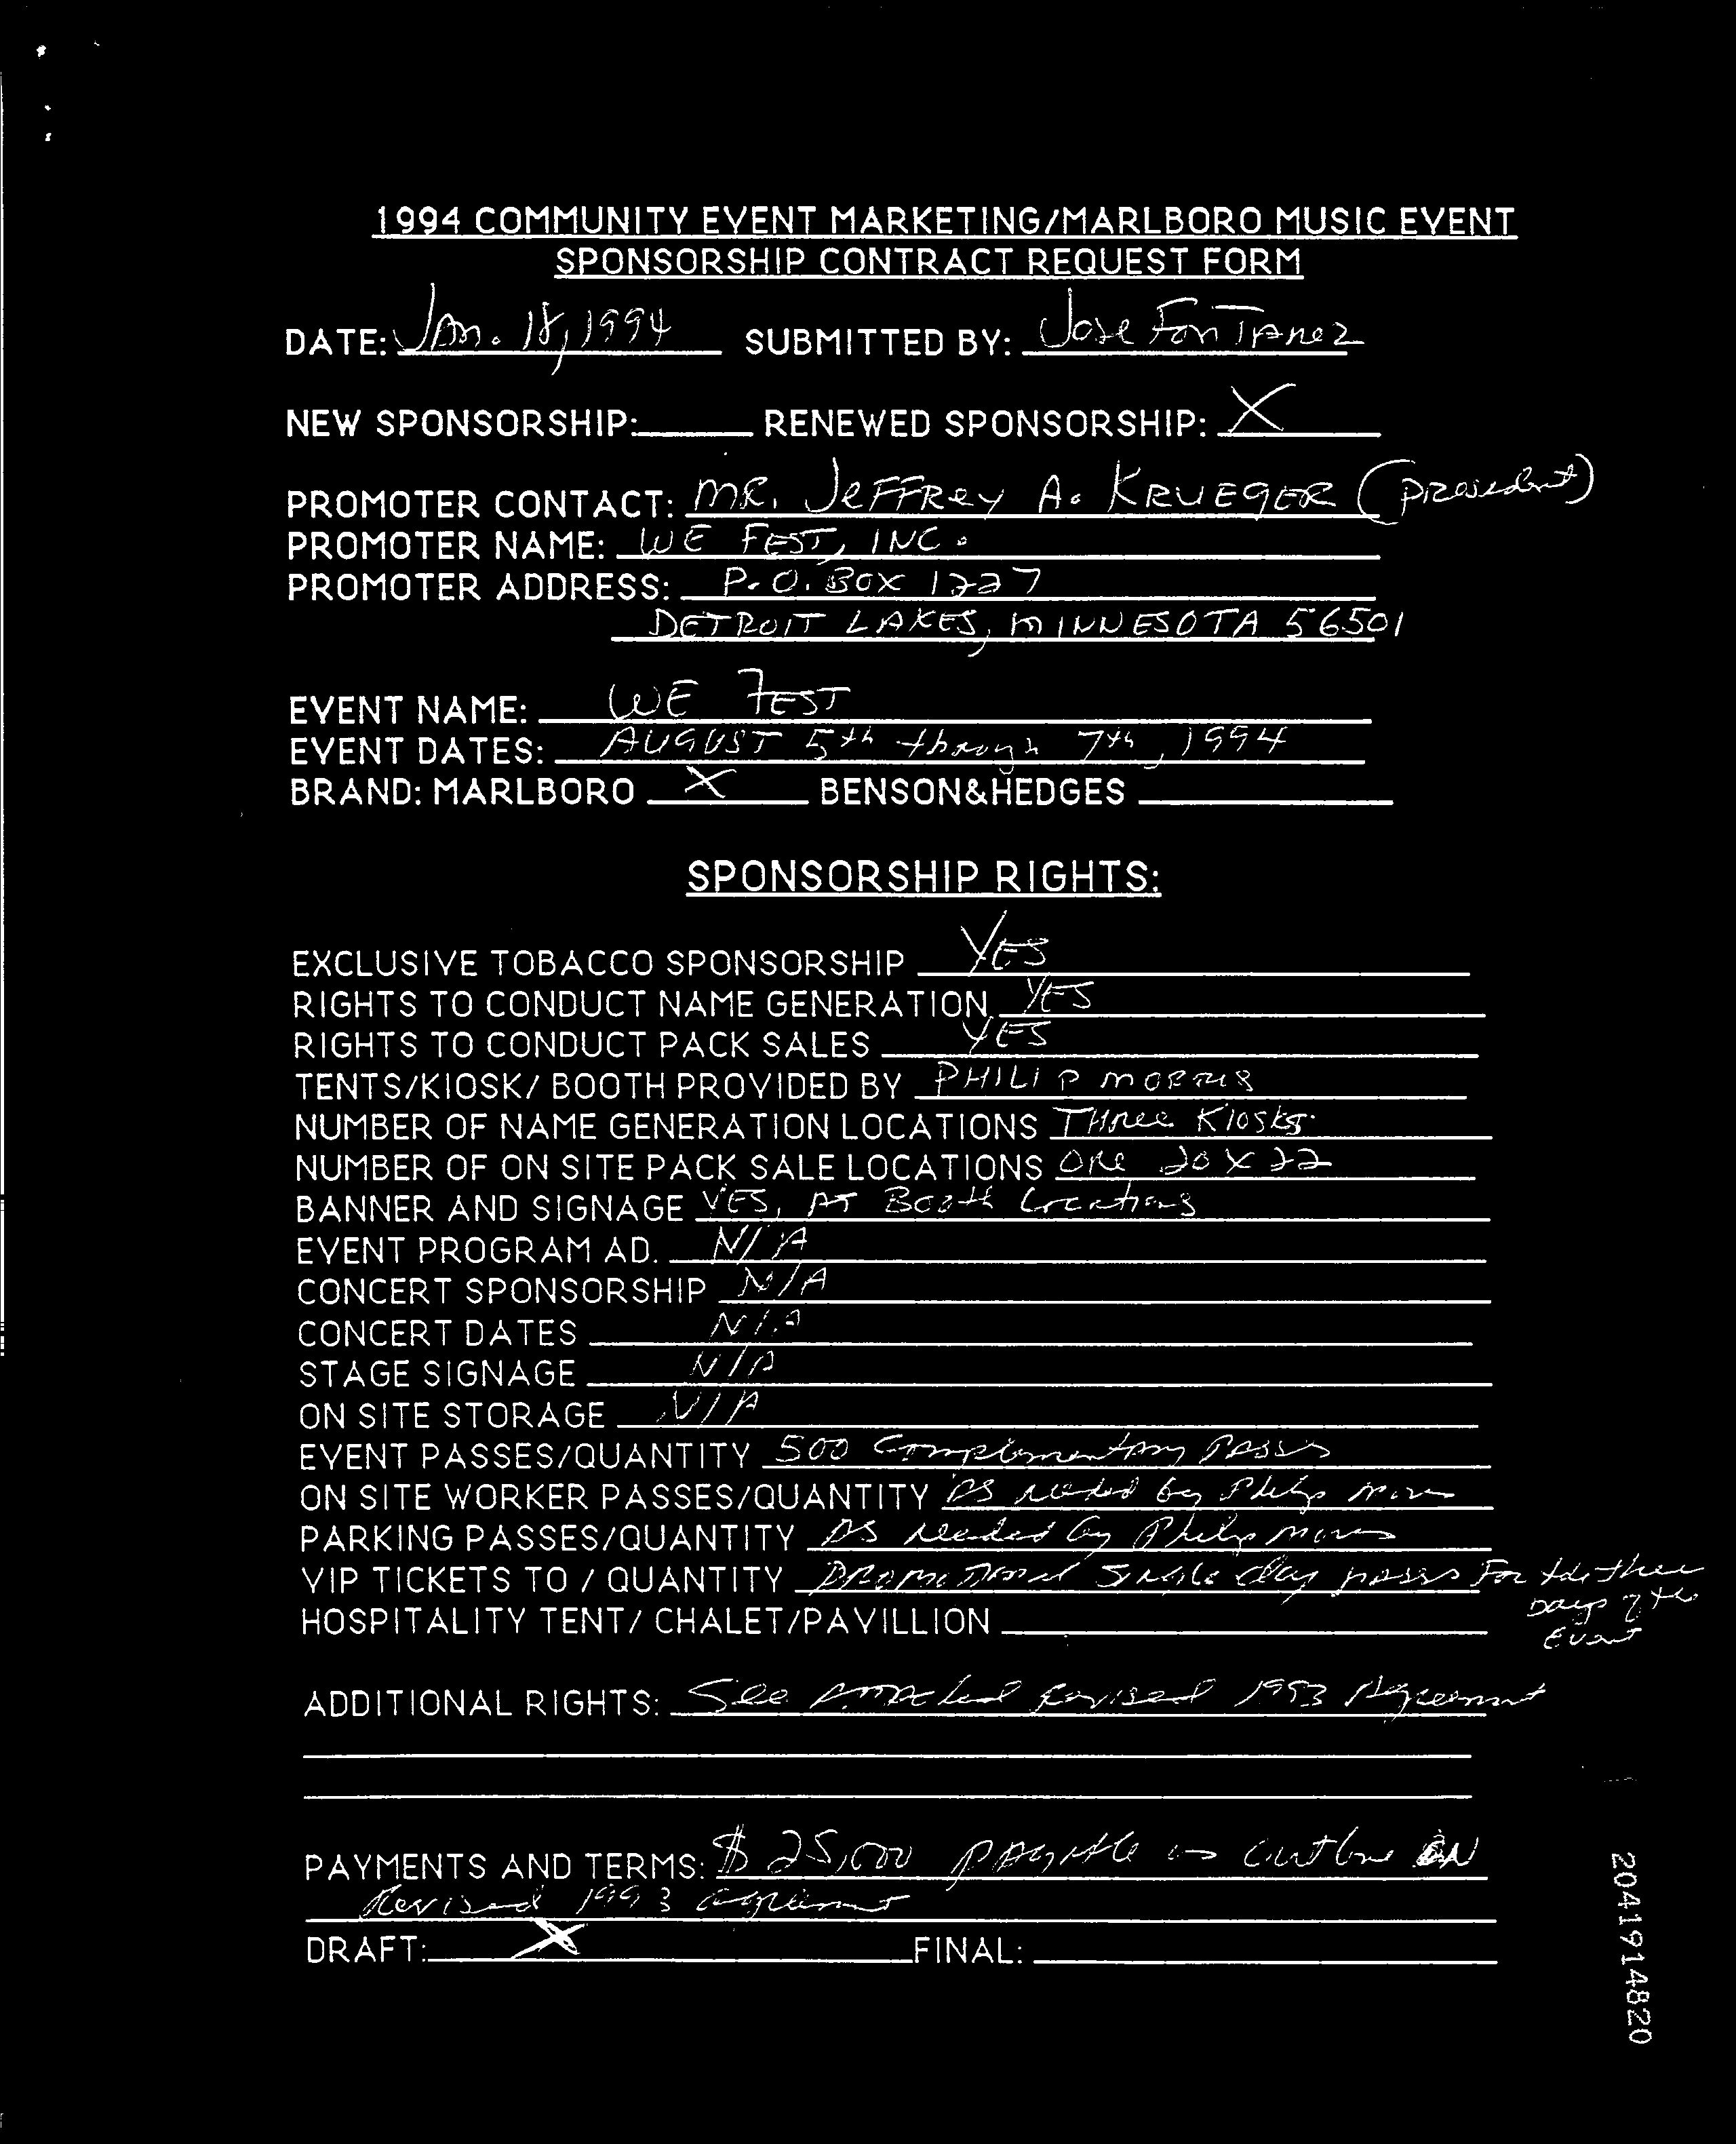 1994 COMMUNITY EVENT MARKETING/MARLBORO MUSIC EVENT
SPONSORSHIP CONTRACT REQUEST FORM
DATE: Jan. 18, 1994 SUBMITTED BY: Jose Fontanez
NEW SPONSORSHIP: RENEWED SPONSORSHIP: X
PROMOTER CONTACT: MR. JEFFREY A. KRUEGER (president)
PROMOTER NAME: WE FEST, INC.
PROMOTER ADDRESS: P.O. BOX 1227
DETROIT LAKES, MINNESOTA 56501
EVENT NAME: WE FEST
EVENT DATES: AUGUST 5th through 7th, 1994
BRAND: MARLBORO X BENSON&HEDGES
SPONSORSHIP RIGHTS:
EXCLUSIVE TOBACCO SPONSORSHIP YES
RIGHTS TO CONDUCT NAME GENERATION YES
RIGHTS TO CONDUCT PACK SALES YES
TENTS/KIOSK/ BOOTH PROVIDED BY PHILIP MORRIS
NUMBER OF NAME GENERATION LOCATIONS THREE KIOSKS
NUMBER OF ON SITE PACK SALE LOCATIONS ONE 20 X 22
BANNER AND SIGNAGE YES, AT Booth Locations
EVENT PROGRAM AD. N/A
CONCERT SPONSORSHIP N/A
CONCERT DATES N/A
STAGE SIGNAGE N/A
ON SITE STORAGE N/A
EVENT PASSES/QUANTITY 500 Complementary Passes
ON SITE WORKER PASSES/QUANTITY AS needed by Philip Morris
PARKING PASSES/QUANTITY AS needed by Philip Morris
VIP TICKETS TO / QUANTITY Promotional Single day passes For the three
Days of the
Event
HOSPITALITY TENT/ CHALET/PAVILLION
ADDITIONAL RIGHTS: See Attached Revised 1993 Agreement
PAYMENTS AND TERMS: $25,000 payable as outline IN
Revised 1993 agreement
DRAFT: X FINAL:
2041914820